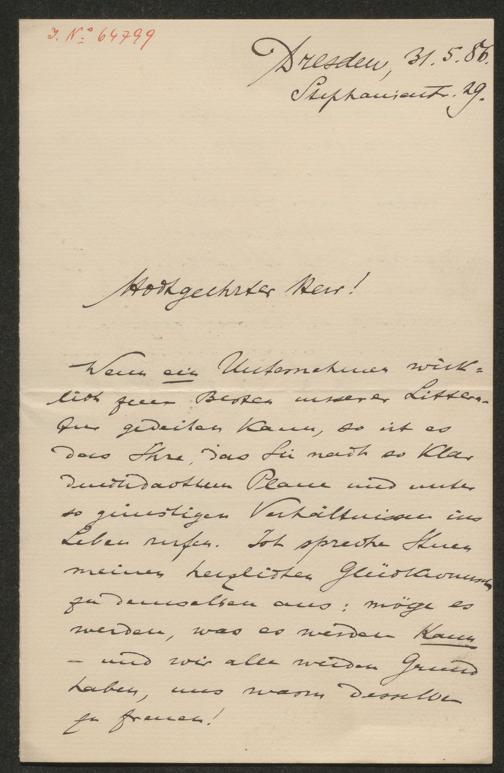 J. No 64799
Dresden, 31.5.86.
Stephanienstr. 29.
Hochgeehrter Herr!
Wenn ein Unternehmen wirk=
lich zum Besten unserer Littera-
tur gedeihen kann, so ist es
das Ihre, das Sie nach so klar
durchdachtem Plane und unter
so günstigen Verhältnissen ins
Leben rufen. Ich spreche Ihnen
meinen herzlichen Glückwunsch
zu demselben aus: möge es
werden, was es werden kann
– und wir alle werden Grund
haben, uns warm desselben
zu freuen!